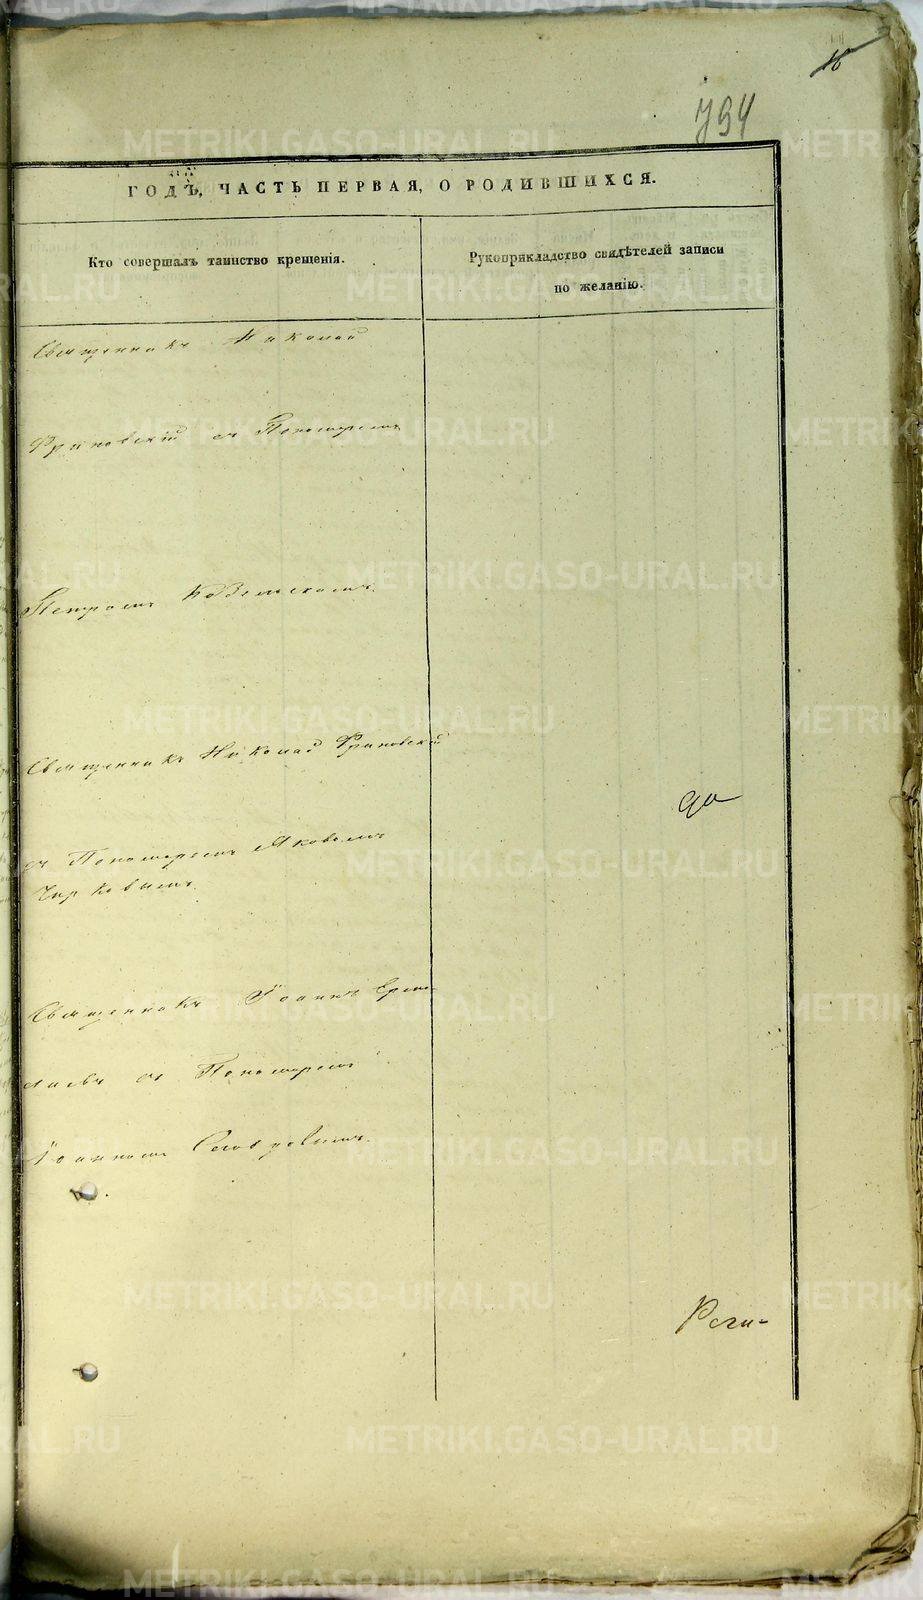 16
794
ГОДЪ, ЧАСТЬ ПЕРВАЯ, О РОДИВШИХСЯ.
Кто совершалъ таинство крещенія.
Рукоприкладство свидѣтелей записи
по желанію.
Священникъ Николай
Фриновскій съ Пономаремъ
Петромъ
Священникъ Николай Фриновскій
да
съ Пономаремъ Яковомъ
Чирковымъ
Священникъ Іоаннъ
съ Пономаремъ
Іоанномъ
METRIKI.GASO-URAL.RU